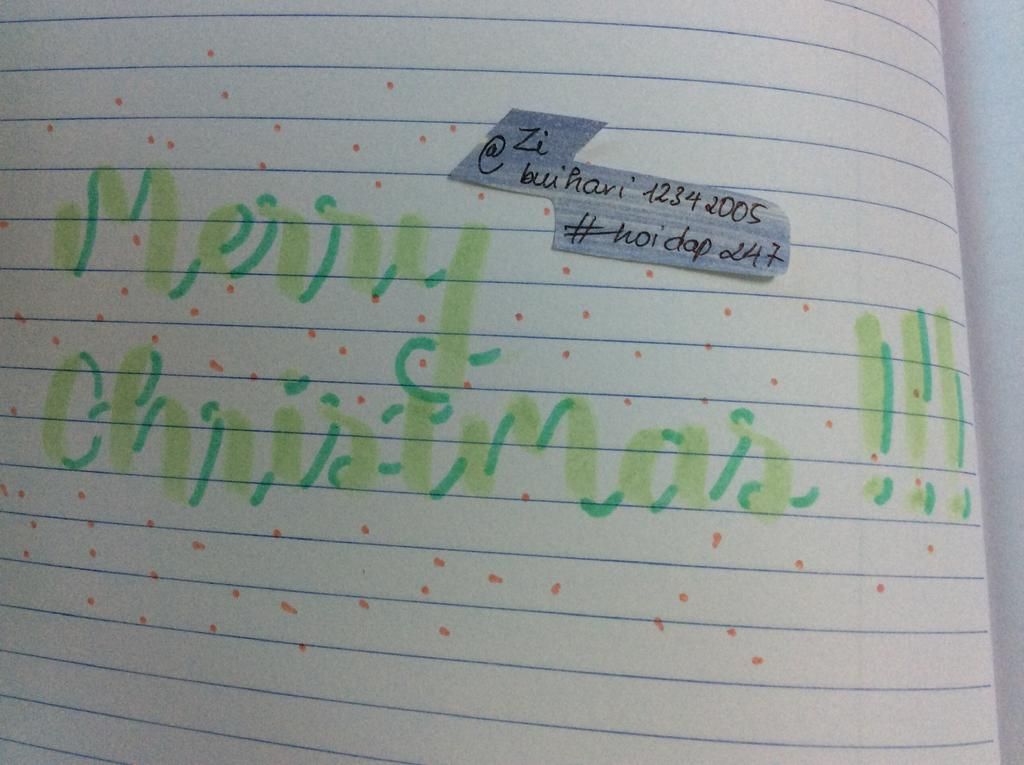 @ Zi
buihari 12342005
#hoidap 247
Merry
Christmas !!!